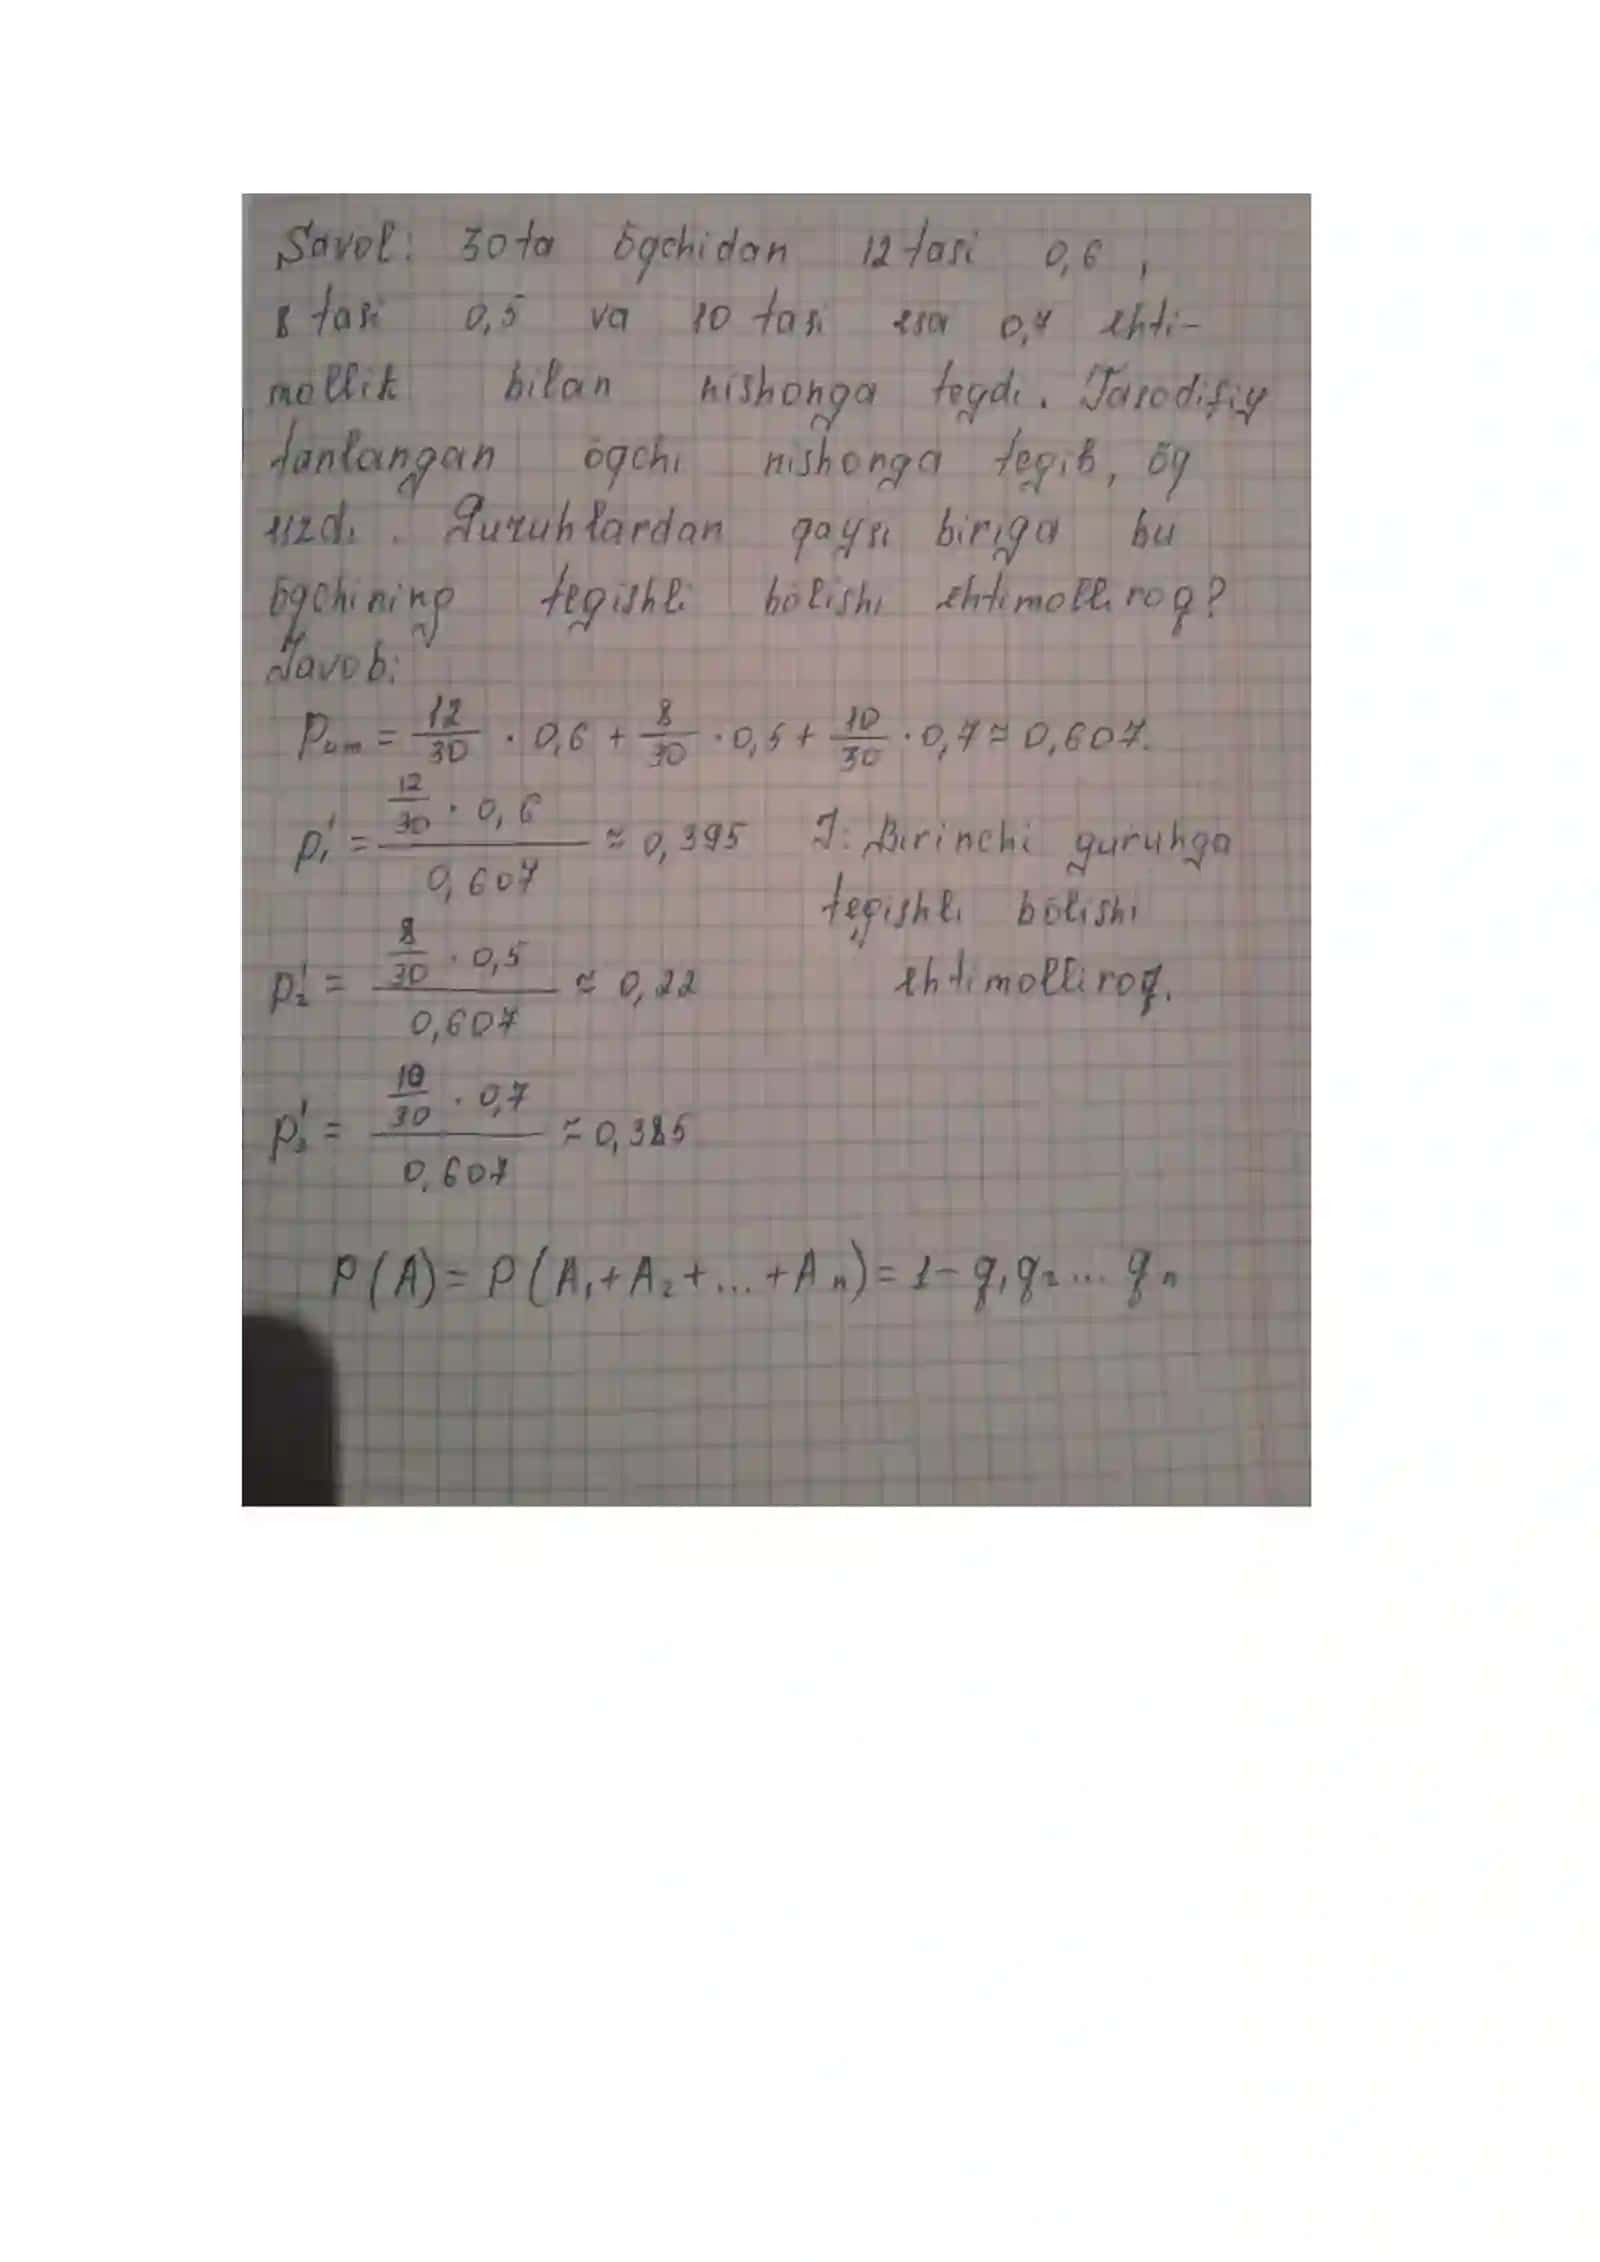 Savol: 30 ta ōqchidan 12 tasi 0,6,
8 tasi 0,5 va 10 tasi esa 0,7 ehti-
mollik bilan nishonga tegdi. Tasodifiy
tanlangan ōqchi nishonga tegib, ōq
uzdi. Guruhlardan qaysi biriga bu
ōqchining tegishli bōlishi ehtimolliroq?
Javob:
Pum = 12/30 · 0,6 + 8/30 · 0,5 + 10/30 · 0,7 ≈ 0,607.
P₁' = (12/30 · 0,6)/0,607 ≈ 0,395 J: Birinchi guruhga
tegishli bōlishi
P₂' = (8/30 · 0,5)/0,607 ≈ 0,22 ehtimolliroq.
P₃' = (10/30 · 0,7)/0,607 ≈ 0,385
P(A) = P(A₁+A₂+...+Aₙ) = 1 - q₁q₂...qₙ